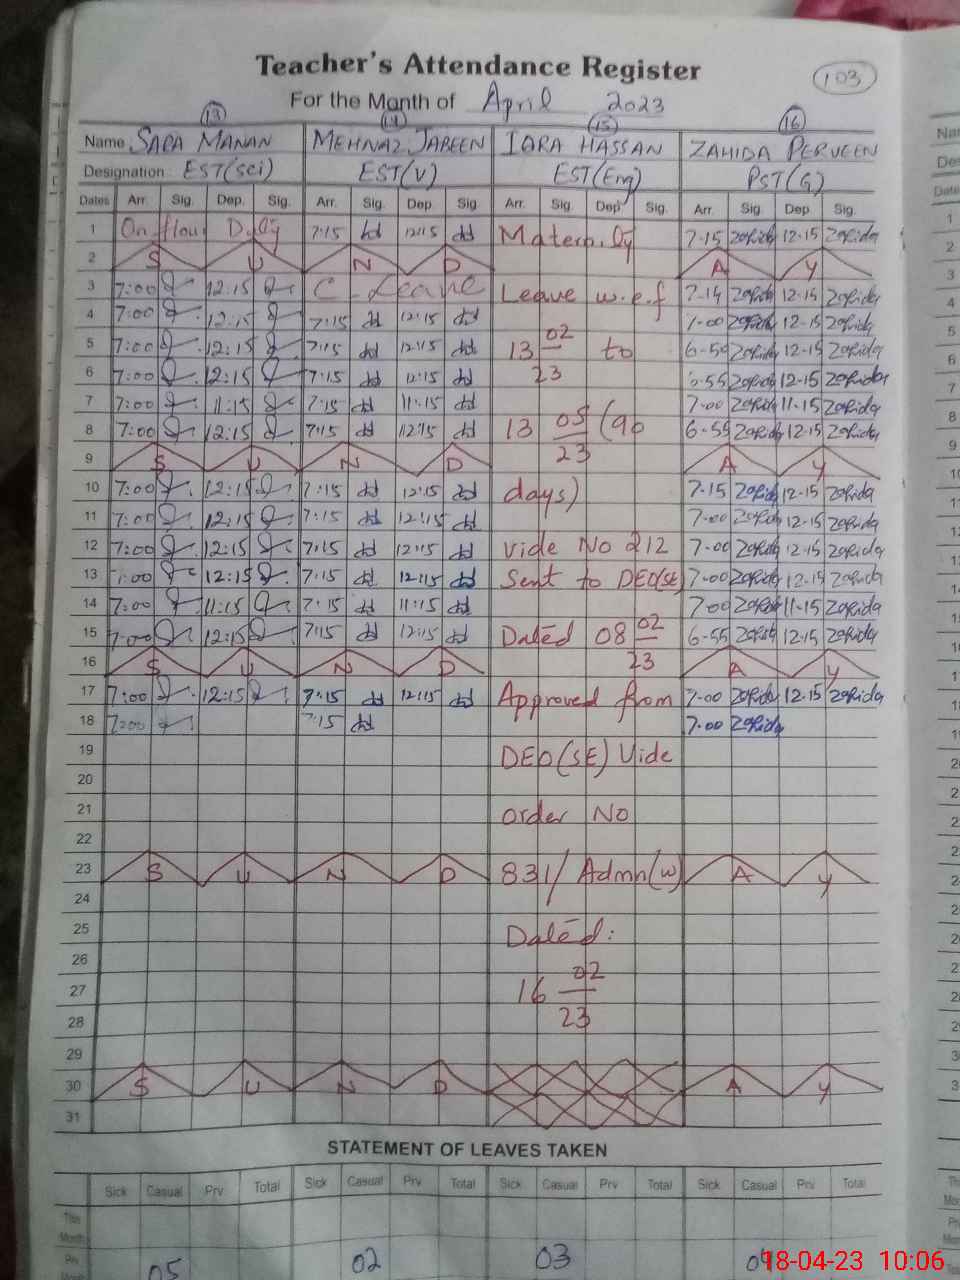 Teacher's Attendance Register
103
For the Month of April 2023
13 14 15 16
Name SARA MANAN MEHNAZ JABEEN IQRA HASSAN ZAHIDA PERVEEN
Designation EST(sci) EST(V) EST(Eng) PST(G)
Dates Arr. Sig. Dep. Sig. Arr. Sig. Dep. Sig. Arr. Sig. Dep. Sig. Arr. Sig. Dep. Sig.
1 On Duty 7:15 12:15 Maternity 7-15 Zahida 12-15 Zahida
2 S U N D A Y
3 7:00 12:15 C. Leave Leave w.e.f 7-14 Zahida 12-15 Zahida
4 7:00 12:15 7:15 12:15 7-00 Zahida 12-15 Zahida
5 7:00 12:15 7:15 12:15 13 02 to 6-50 Zahida 12-15 Zahida
6 7:00 12:15 7:15 12:15 23 6-55 Zahida 12-15 Zahida
7 7:00 11:15 7:15 11:15 7-00 Zahida 11-15 Zahida
8 7:00 12:15 7:15 12:15 13 05 (90 6-55 Zahida 12-15 Zahida
9 S U N D 23 A Y
10 7:00 12:15 7:15 12:15 days) 7-15 Zahida 12-15 Zahida
11 7:00 12:15 7:15 12:15 7-00 Zahida 12-15 Zahida
12 7:00 12:15 7:15 12:15 Vide No 212 7-00 Zahida 12-15 Zahida
13 7:00 12:15 7:15 12:15 Sent to DEO(SE) 7-00 Zahida 12-15 Zahida
14 7:00 11:15 7:15 11:15 7-00 Zahida 11-15 Zahida
15 7:00 12:15 7:15 12:15 Dated 08 02 6-55 Zahida 12-15 Zahida
16 S U N D 23 A Y
17 7:00 12:15 7:15 12:15 Approved from 7-00 Zahida 12-15 Zahida
18 7:00 7:15 7-00 Zahida
19 DEO(SE) Vide
20
21 order No
22
23 S U N D 831/Admn(w) A Y
24
25 Dated:
26
27 16 02
28 23
29
30 S U N D A Y
31
STATEMENT OF LEAVES TAKEN
Sick Casual Prv Total Sick Casual Prv Total Sick Casual Prv Total Sick Casual Prv Total
This Month
Prv Month 05 02 03
18-04-23 10:06